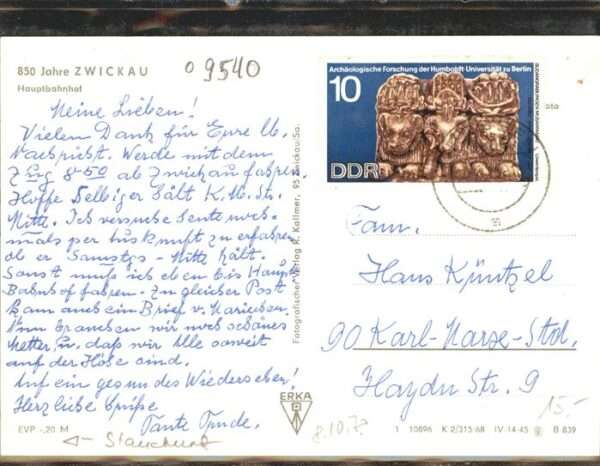 850 Jahre ZWICKAU
Hauptbahnhof
09540
Meine Lieben!
Vielen Dank für Eure lb.
Nachricht. Werde mit dem
Zug 8.50 ab Zwickau fahren.
Hoffe selbiger hält K.M.St.
Mitte. Ich versuche heute noch-
mals per Auskunft zu erfahren
ob er Samstgs - Mitte hält.
Sonst muß ich eben bis Haupt
Bahnhof fahren. Zu gleicher Post
kam auch ein Brief v. Mariechen.
Nun brauchen wir noch schönes
Wetter, u. daß wir Alle soweit
auf der Höhe sind.
Auf ein gesundes Wiedersehen!
Herzliche Grüße
Tante Trude.
EVP -,20 M
Fotografischer Verlag R. Kallmer, 95 Zwickau/Sa.
ERKA
Archäologische Forschung der Humboldt-Universität zu Berlin
10
DDR
Fam.
Hans Küntzel
90 Karl-Marx-Std.
Haydn Str. 9
15.-
8.10.70
1 10896 K 2/315/68 IV-14-45 B 839